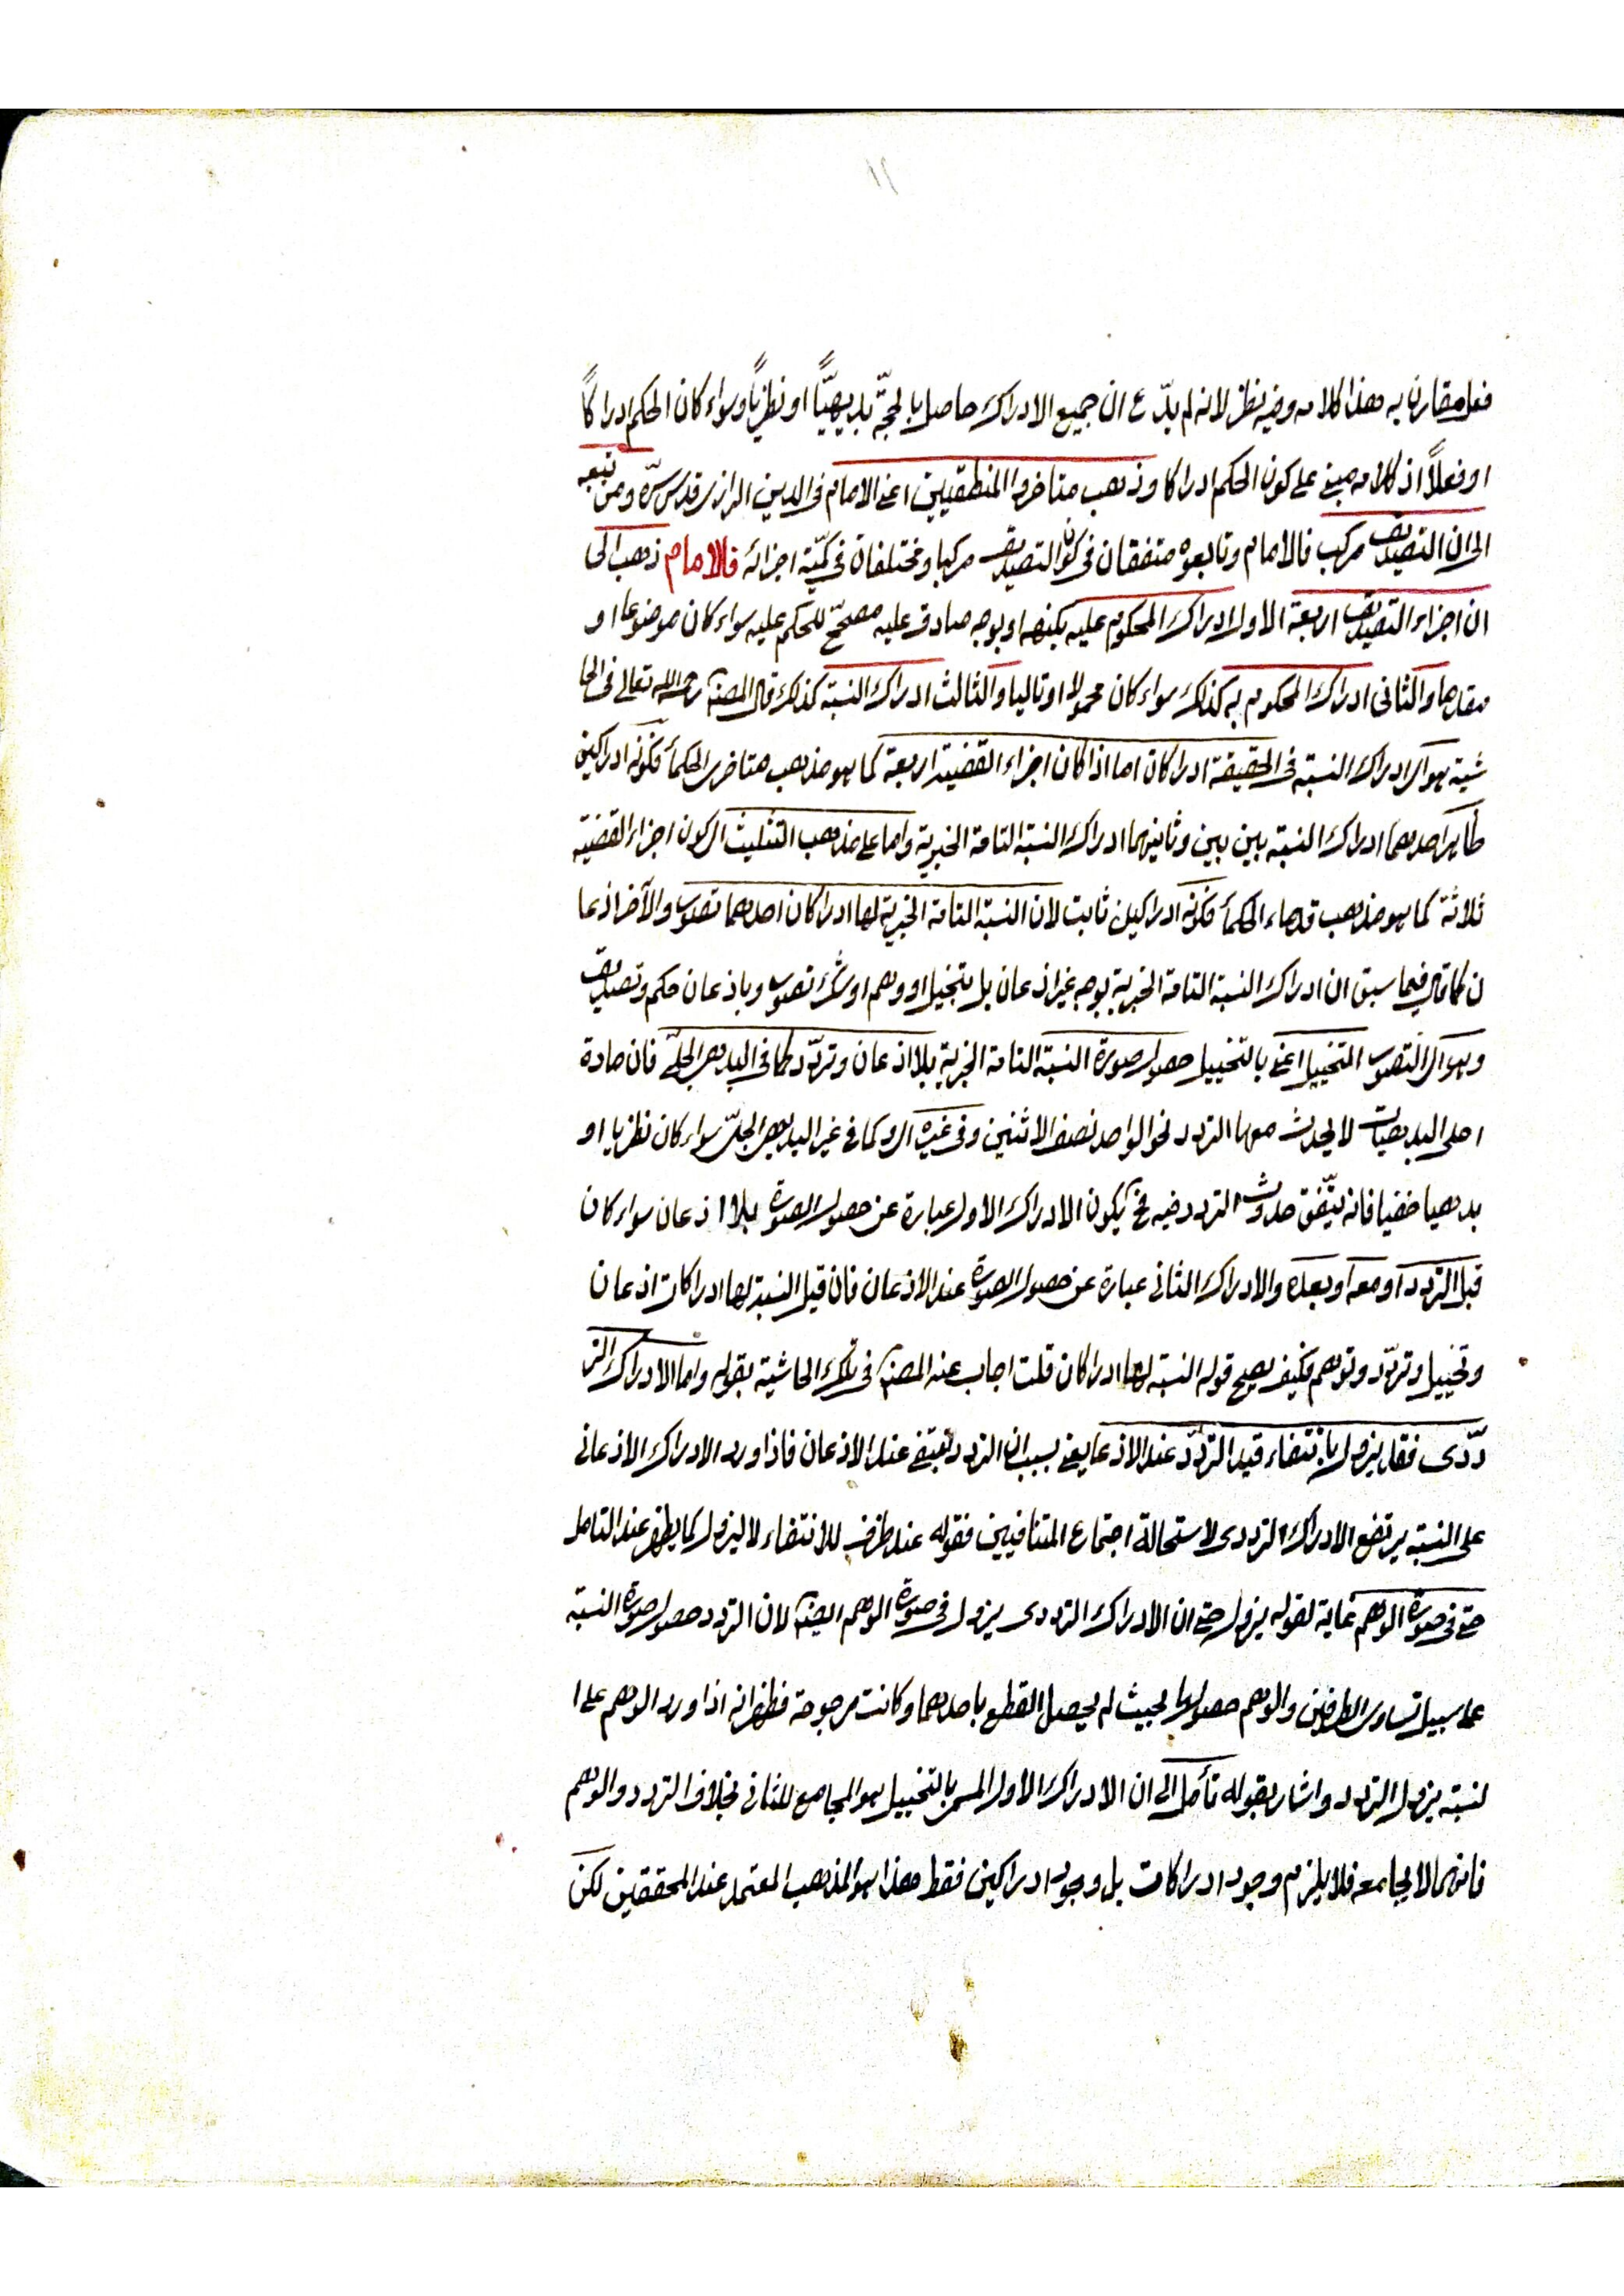 ١١
فعل مقارن به هذا كلامه وفيه نظر لانه لم يدّع ان جميع الادراك حاصل بالحجّة بديهيّاً او نظريّاً وسواء كان الحكم ادراكاً
او فعلاً اذ كلامه مبنى على كون الحكم ادراكا وذهب متاخروا المنطقيين اعنى الامام فى الدين الرازى قدس سرّه ومن تبعه
الى ان التصديق مركب فالامام وتابعوه متفقان فى كون التصديق مركبا ومختلفان فى كميّة اجزائه فالامام ذهب الى
ان اجزاء التصديق اربعة الاول ادراك المحكوم عليه بكنهه او بوجه صادق عليه مصحّح للحكم عليه سواء كان موضوعا او
مقدما والثانى ادراك المحكوم به كذلك سواء كان محمولا او تاليا والثالث ادراك النسبة كذلك قال المصنف رحمه الله تعالى فى الحا
شية هو اى ادراك النسبة فى الحقيقة ادراكان اما اذا كان اجزاء القضية اربعة كما هو مذهب متاخرى الحكمأ فكونه ادراكين
ظاهر احدهما ادراك النسبة بين بين وثانيهما ادراك النسبة التامة الخبرية واما على مذهب التثليث اى كون اجزاء القضية
ثلاثة كما هو مذهب قدماء الحكمأ فكونه ادراكين ثابت لان النسبة التامة الخبرية لها ادراكان احدهما تصور والآخر اذعا
ن كما قال فيما سبق ان ادراك النسبة التامة الخبرية بوجه غير اذعان بل بتخيل او وهم او شك تصور وباذعان حكم وتصديق
وهو اى التصور التخييل اعنى بالتخييل حصول صورة النسبة التامة الخبرية بلا اذعان وتردّد كما فى البديهى الجلىّ فان مادة
اجلى البديهيات لا يحدث معها التردد نحو الواحد نصف الاثنين وفى غيره اى وكما فى غير البديهى الجلىّ سواء كان نظريا او
بديهيا خفيا فانه يتّفق حدوث التردد فيه فح يكون الادراك الاول عبارة عن حصول الصورة بلا اذعان سواء كان
قبل التردد او معه او بعده والادراك الثانى عبارة عن حصول الصورة عند الاذعان فان قيل النسبة لها ادراكات اذعان
وتخييل وتردّد وتوهم فكيف يصح قوله النسبة لها ادراكان قلت اجاب عنه المصنف فى تلك الحاشية بقوله واما الادراك التر
دّدى فقد يزول بانتفاء قيد التردّد عند الاذعا يعنى بسبب ان التردد ينتفى عند الاذعان فاذا ورد الادراك الاذعانى
على النسبة يرتفع الادراك الترددى لاستحالة اجتماع المتنافيين فقوله عند ظرف للانتفاء لا ليزول كما يظهر عند التامل
حتى فى صورة الوهم غاية لقوله يزول حتى ان الادراك الترددى يزول فى صورة الوهم ايضا لان التردد حصول صورة النسبة
على سبيل تساوى الطرفين والوهم حصولها بحيث لم يحصل القطع باحدهما وكانت مرجوحة فظهر انه اذا ورد الوهم على ا
لنسبة يزول التردد واشار بقوله تأمل الى ان الادراك الاول المسمى بالتخييل هو المجامع للثانى بخلاف التردد والوهم
فانهما لا يجامعه فلا يلزم وجود ادراكات بل وجود ادراكين فقط هذا هو المذهب المعتمد عند المحققين لكن